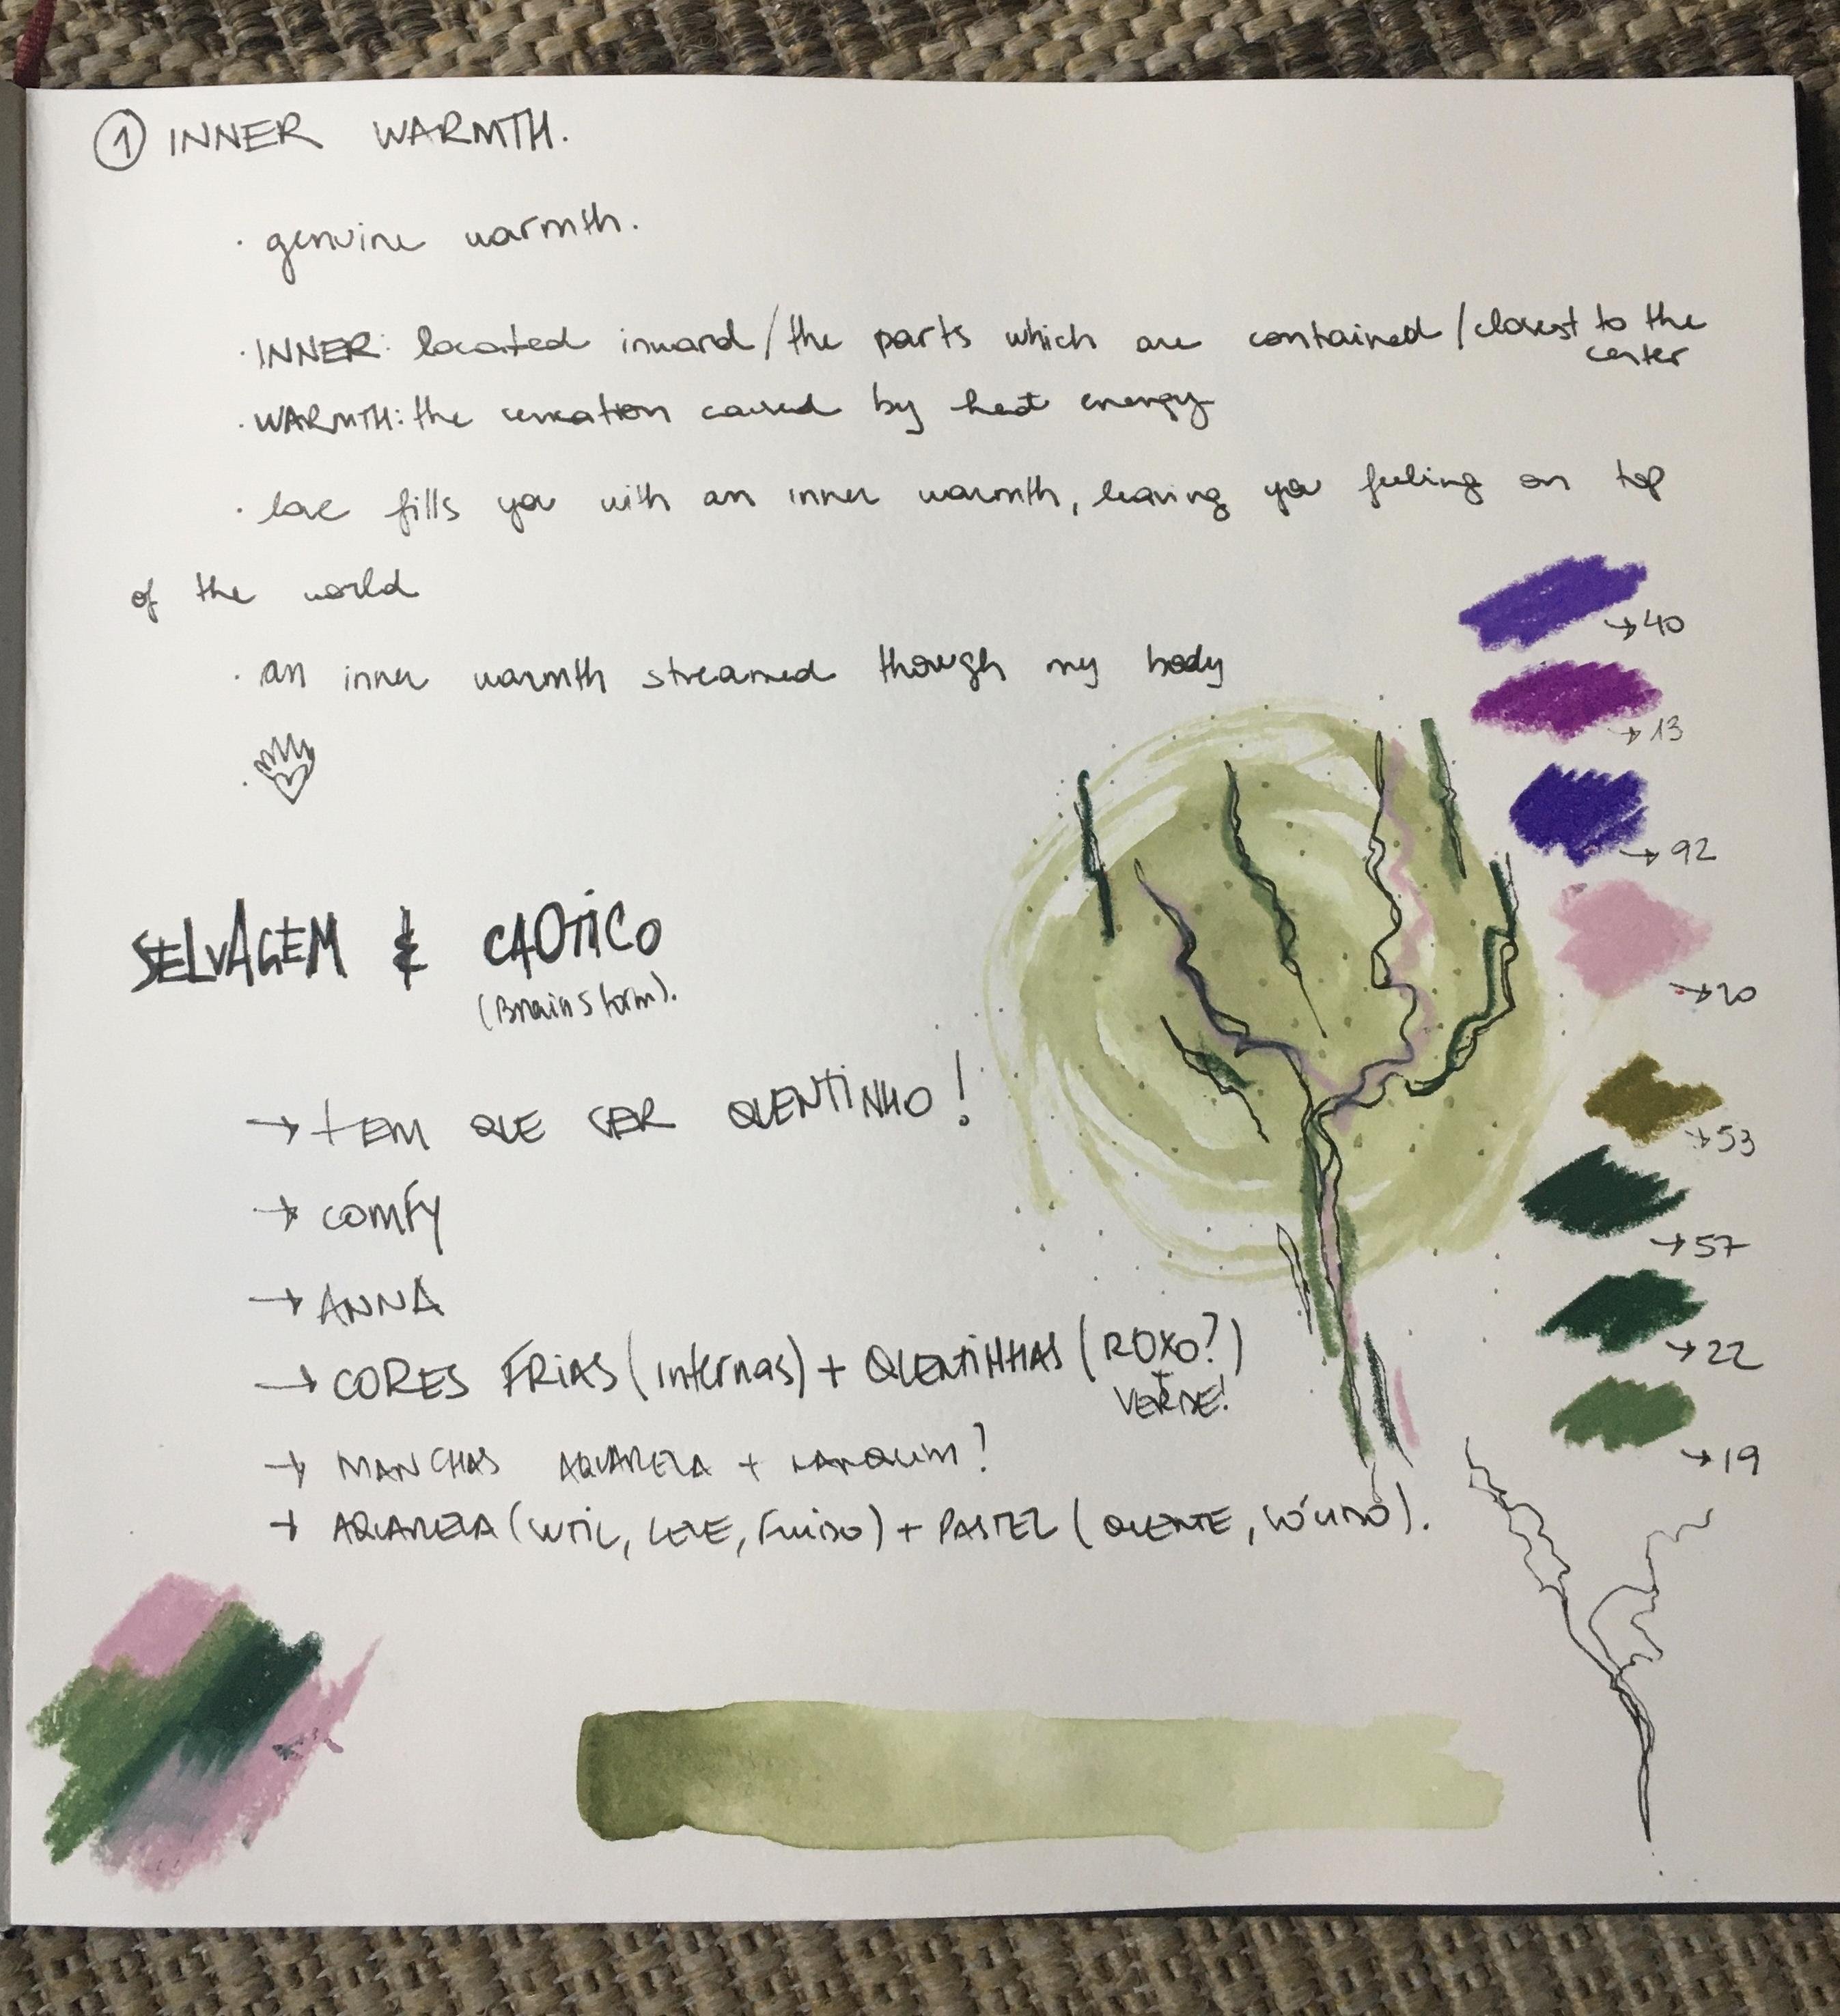 1 INNER WARMTH.
· genuine warmth.
· INNER: located inward/the parts which are contained/closest to the
center
· WARMTH: the sensation caused by heat energy
· love fills you with an inner warmth, leaving you feeling on top
of the world
· an inner warmth streamed though my body
SELVAGEM & CAOTiCO
(Brainstorm).
→ tEM QUE SER QUENTiNHO!
→ comfy
→ ANNA
→ CORES FRiAS (internas) + QUENTiNHAS (ROXO?)
+
VERDE!
→ MANCHAS AQUARELA + NANQUIM?
→ AQUARELA (SUTIL, LEVE, FLUIDO) + PASTEL (QUENTE, SÓLIDO).
→40
→13
→92
→20
→53
→57
→22
→19